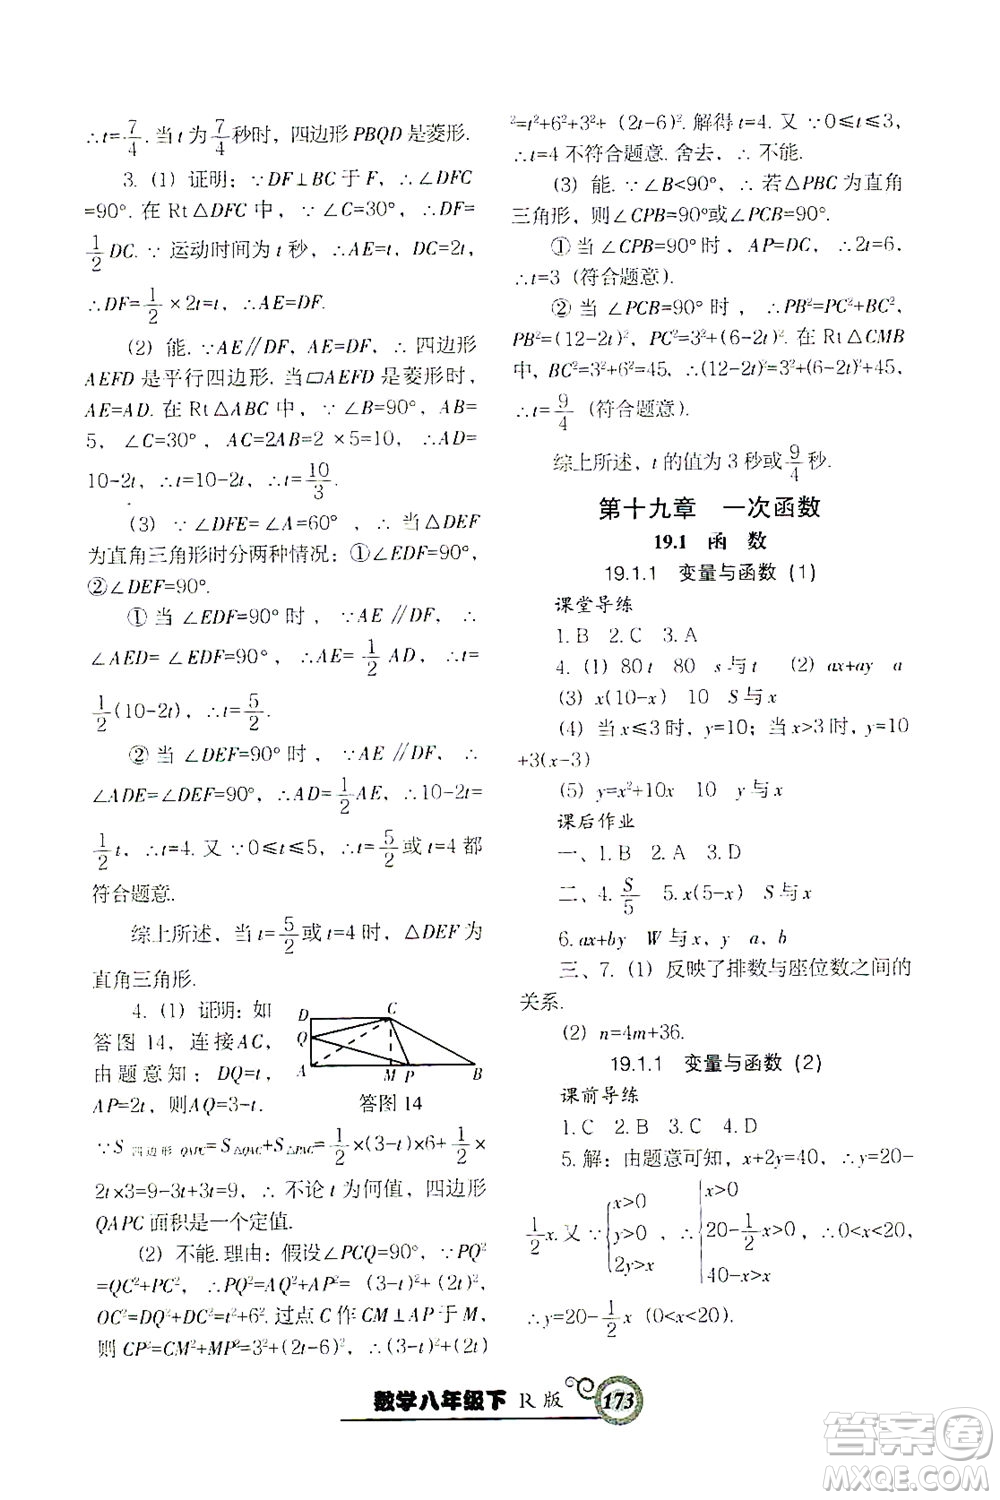 ∴t=7/4. 当 t 为 7/4 秒时，四边形 PBQD 是菱形.
3. (1) 证明：∵DF⊥BC 于 F，∴∠DFC
=90°. 在 Rt△DFC 中，∵∠C=30°，∴DF=
1/2 DC. ∵ 运动时间为 t 秒，∴AE=t，DC=2t，
∴DF=1/2×2t=t，∴AE=DF.
(2) 能. ∵AE∥DF，AE=DF，∴ 四边形
AEFD 是平行四边形. 当▱AEFD 是菱形时，
AE=AD. 在 Rt△ABC 中，∵∠B=90°，AB=
5，∠C=30°，AC=2AB=2×5=10，∴AD=
10-2t，∴t=10-2t，∴t=10/3.
(3) ∵∠DFE=∠A=60°，∴ 当△DEF
为直角三角形时分两种情况：①∠EDF=90°，
②∠DEF=90°.
① 当∠EDF=90°时，∵AE∥DF，∴
∠AED=∠EDF=90°，∴AE=1/2 AD，∴t=
1/2(10-2t)，∴t=5/2.
② 当∠DEF=90°时，∵AE∥DF，∴
∠ADE=∠DEF=90°，∴AD=1/2AE，∴10-2t=
1/2 t，∴t=4. 又∵0≤t≤5，∴t=5/2或 t=4 都
符合题意.
综上所述，当 t=5/2或 t=4 时，△DEF 为
直角三角形.
4. (1) 证明：如
答图 14，连接AC，
由题意知：DQ=t，
AP=2t，则AQ=3-t.
D C Q A M P B
答图 14
∵S四边形 QAPC=S△QAC+S△PAC=1/2×(3-t)×6+1/2×
2t×3=9-3t+3t=9，∴ 不论 t 为何值，四边形
QAPC 面积是一个定值.
(2) 不能. 理由：假设∠PCQ=90°，∴PQ²
=QC²+PC²，∴PQ²=AQ²+AP²=(3-t)²+(2t)²，
QC²=DQ²+DC²=t²+6². 过点 C 作 CM⊥AP 于 M，
则 CP²=CM²+MP²=3²+(2t-6)²，∴(3-t)²+(2t)
²=t²+6²+3²+(2t-6)². 解得 t=4. 又∵0≤t≤3，
∴t=4 不符合题意. 舍去，∴ 不能.
(3) 能. ∵∠B<90°，∴ 若△PBC为直角
三角形，则∠CPB=90°或∠PCB=90°.
① 当∠CPB=90°时，AP=DC，∴2t=6，
∴t=3 (符合题意).
② 当∠PCB=90°时，∴PB²=PC²+BC²，
PB²=(12-2t)²，PC²=3²+(6-2t)². 在 Rt△CMB
中，BC²=3²+6²=45，∴(12-2t)²=3²+(6-2t)²+45，
∴t=9/4 (符合题意).
综上所述，t 的值为 3 秒或9/4秒.
第十九章 一次函数
19.1 函 数
19.1.1 变量与函数 (1)
课堂导练
1. B 2. C 3. A
4. (1) 80t 80 s与t (2) ax+ay a
(3) x(10-x) 10 S与x
(4) 当 x≤3 时，y=10；当 x>3 时，y=10
+3(x-3)
(5) y=x²+10x 10 y与x
课后作业
一、1. B 2. A 3. D
二、4. S/5 5. x(5-x) S与x
6. ax+by W与x，y a，b
三、7. (1) 反映了排数与座位数之间的
关系.
(2) n=4m+36.
19.1.1 变量与函数 (2)
课前导练
1. C 2. B 3. C 4. D
5. 解：由题意可知，x+2y=40，∴y=20-
1/2 x. 又∵{x>0 y>0 2y>x，∴{x>0 20-1/2 x>0 40-x>x，∴0<x<20，
∴y=20-1/2 x (0<x<20).
数学八年级下 R 版 173
答案圈
MXQE.COM